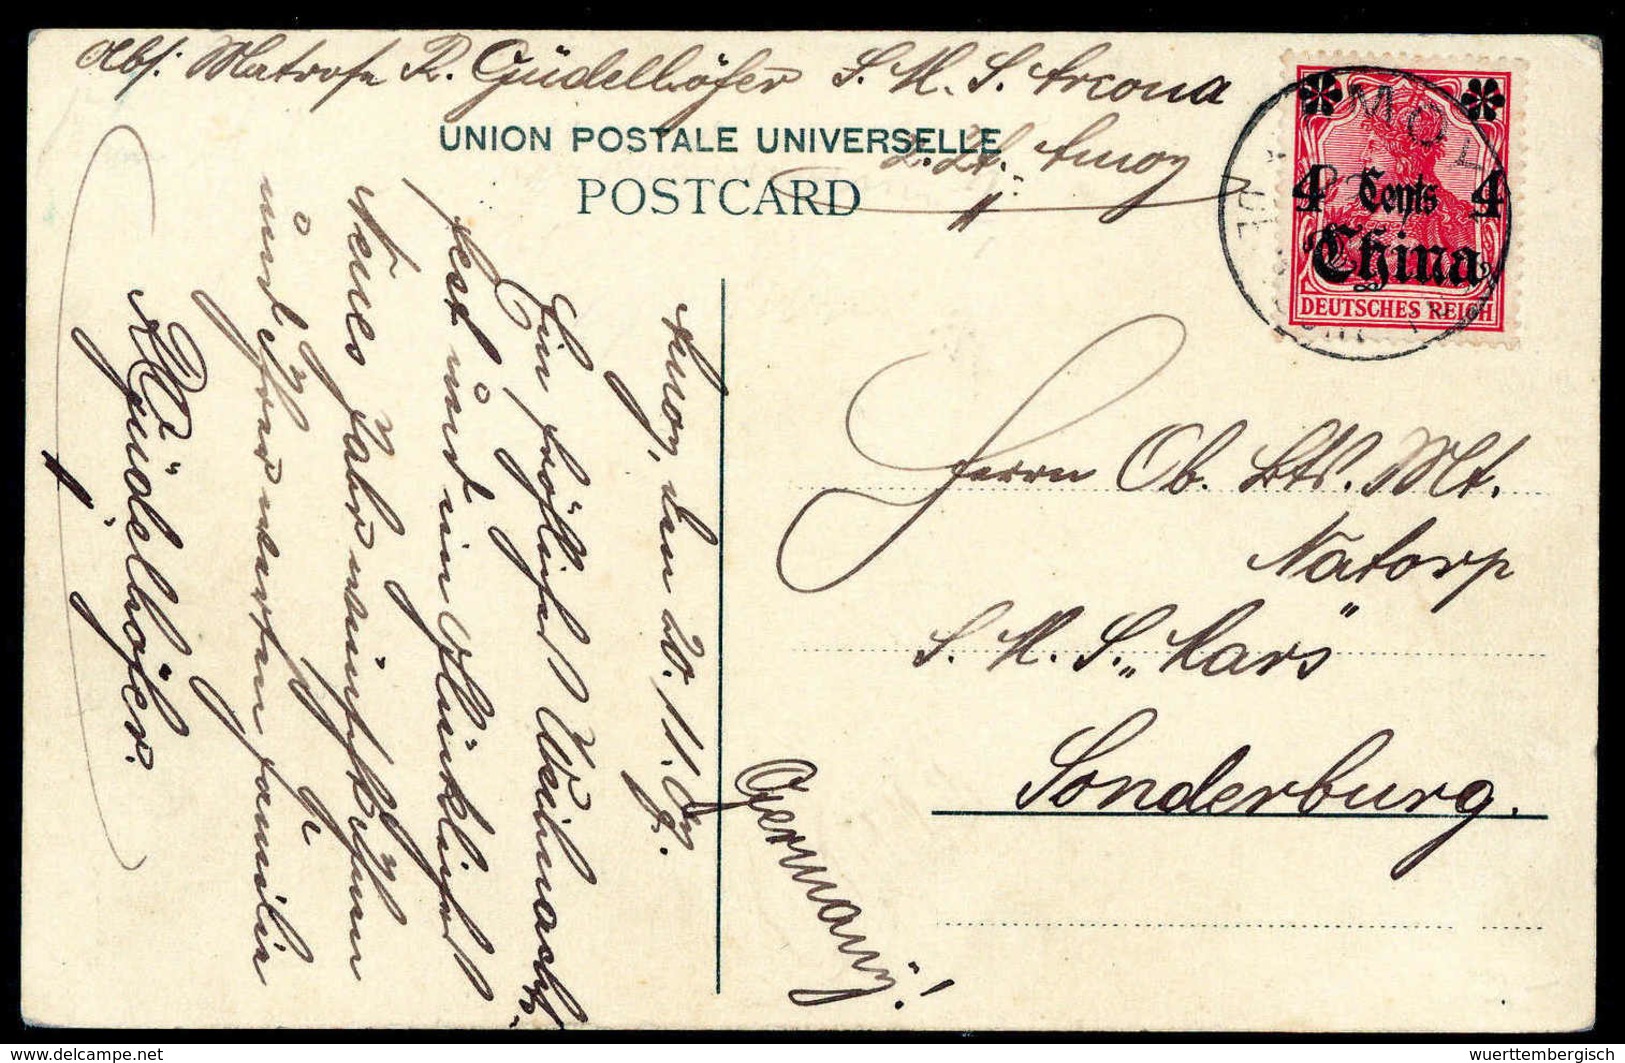 Abs: Matrose R. Güdelhöfer S. M. S. Arcona
z. Zt. Amoy
UNION POSTALE UNIVERSELLE
POSTCARD
4 Cents 4
China
DEUTSCHES REICH
Amoy, den 20. 11. 09.
Ein fröhliches Weihnachts-
fest und ein glückliches
Neues Jahr wünscht Ihnen
und Ihrer werten Familie
R. Güdelhöfer.
Herrn Ob. Bts. Mt.
Natorp
S. M. S. „Mars"
Sonderburg.
Germany!
© delcampe.net
wuerttembergisch